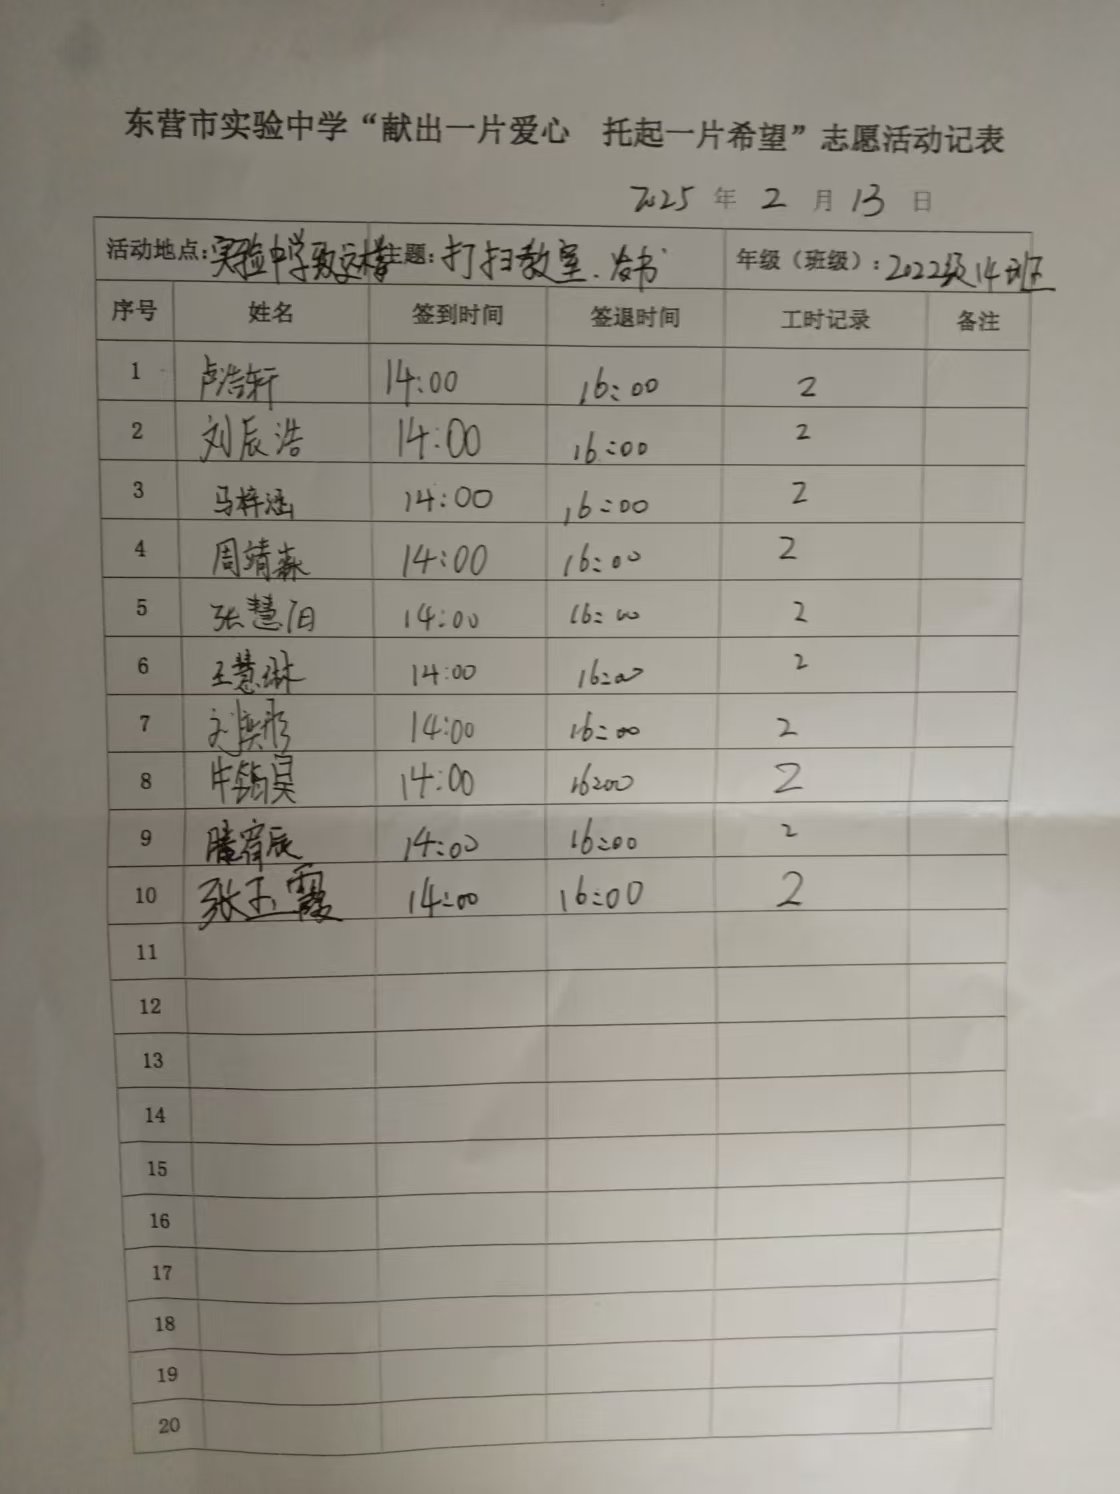 东营市实验中学“献出一片爱心 托起一片希望”志愿活动记表
2025 年 2 月 13 日
活动地点：实验中学致远楼 主题：打扫教室、发书 年级（班级）：2022级14班
序号 姓名 签到时间 签退时间 工时记录 备注
1 卢浩轩 14:00 16:00 2
2 刘辰浩 14:00 16:00 2
3 马梓涵 14:00 16:00 2
4 周靖森 14:00 16:00 2
5 张慧 14:00 16:00 2
6 王慧琳 14:00 16:00 2
7 刘奕彤 14:00 16:00 2
8 牛 昊 14:00 16:00 2
9 滕宥辰 14:00 16:00 2
10 张玉霞 14:00 16:00 2
11
12
13
14
15
16
17
18
19
20